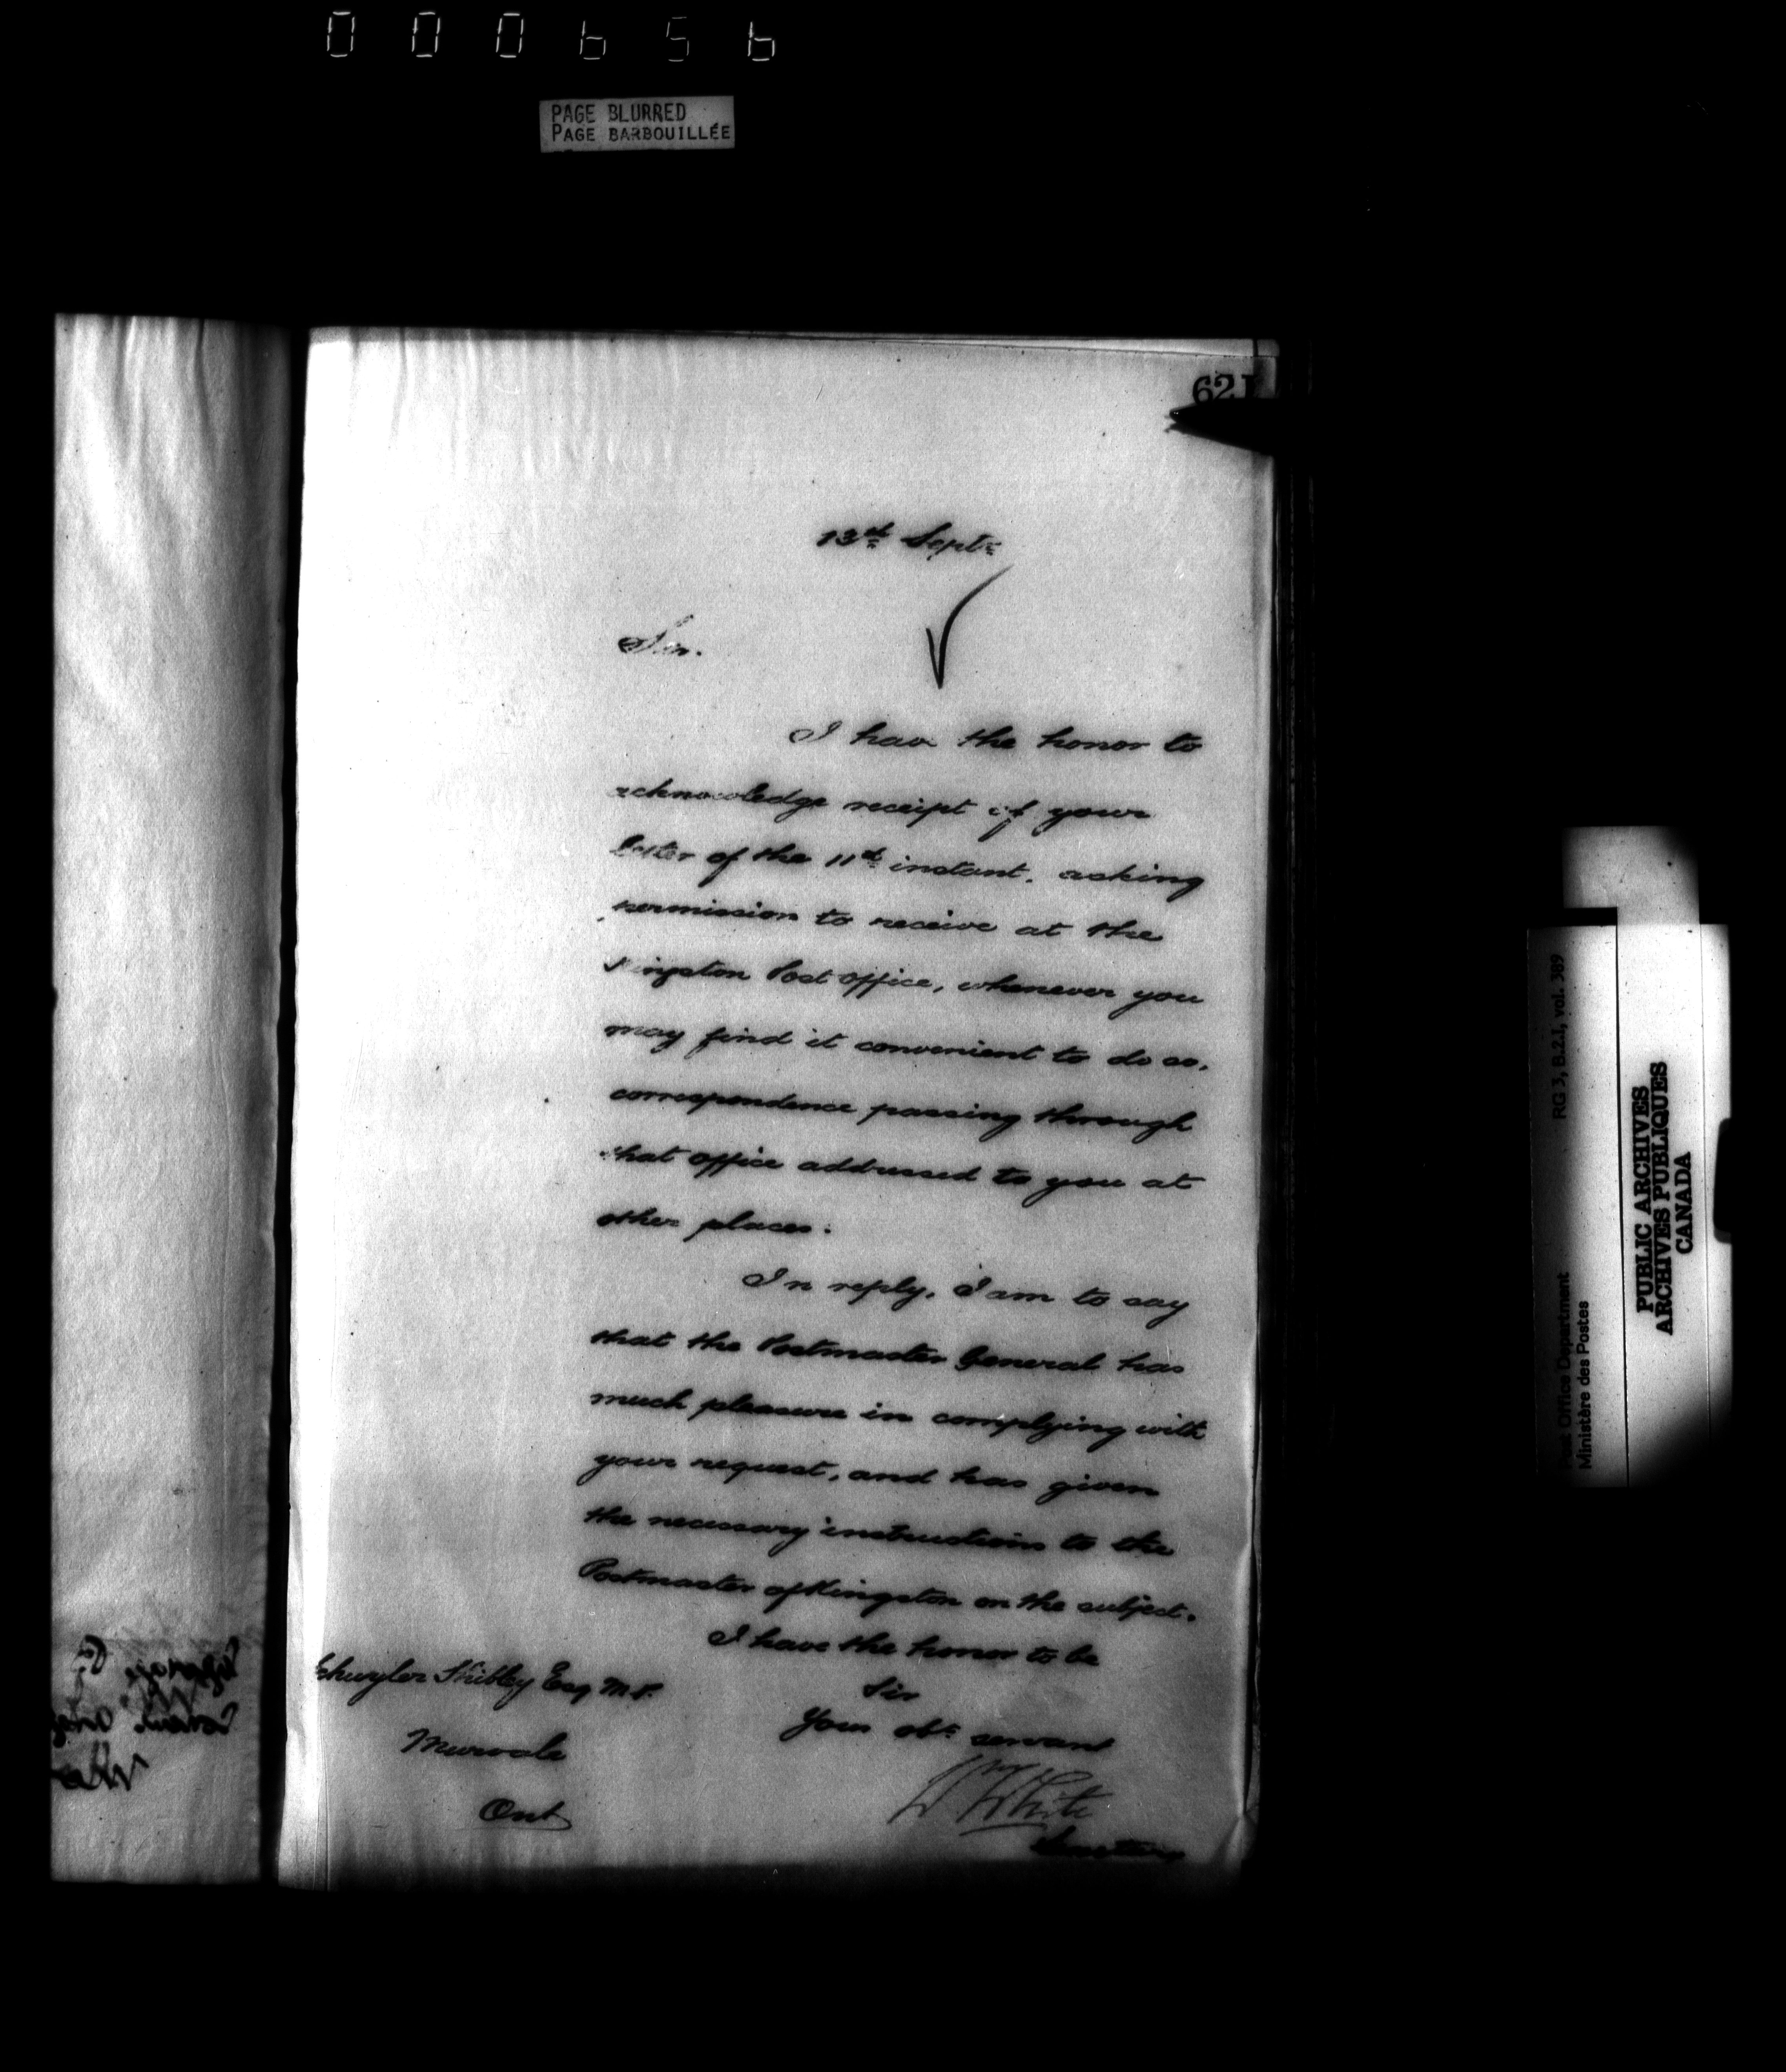 000656
PAGE BLURRED
PAGE BARBOUILLÉE
621
13th Septr
Sir.
I have the honor to
acknowledge receipt of your
letter of the 11th instant. asking
permission to receive at the
Kingston Post Office, whenever you
may find it convenient to do so,
correspondence passing through
that office addressed to you at
other places.
In reply, I am to say
that the Postmaster General has
much pleasure in complying with
your request, and has given
the necessary instructions to the
Postmaster of Kingston on the subject.
I have the honor to be
Sir
Your obt. servant
Wm White
Secretary
Schuyler Shibley Esq M.P.
Murvale
Ont
RG 3, B.2.1, vol. 389
Post Office Department
Ministère des Postes
PUBLIC ARCHIVES
ARCHIVES PUBLIQUES
CANADA